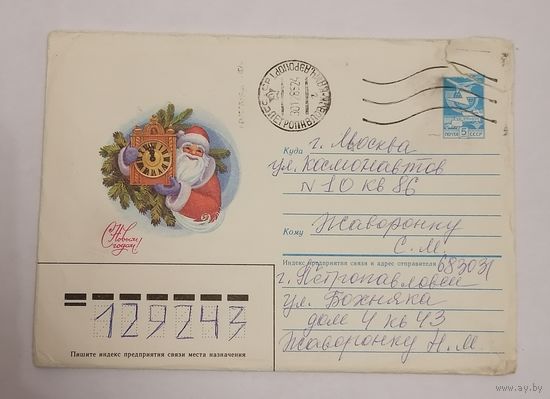 С Новым
годом!
ПОЧТА 5 СССР
Куда г. Москва
ул. Космонавтов
N 10 кв 86
Кому Жаворонку
С. М.
Индекс предприятия связи и адрес отправителя 683031
г. Петропавловск
ул. Бохняка
дом 4 кв 43
Жаворонку Н. М
129243
Пишите индекс предприятия связи места назначения
www.ay.by